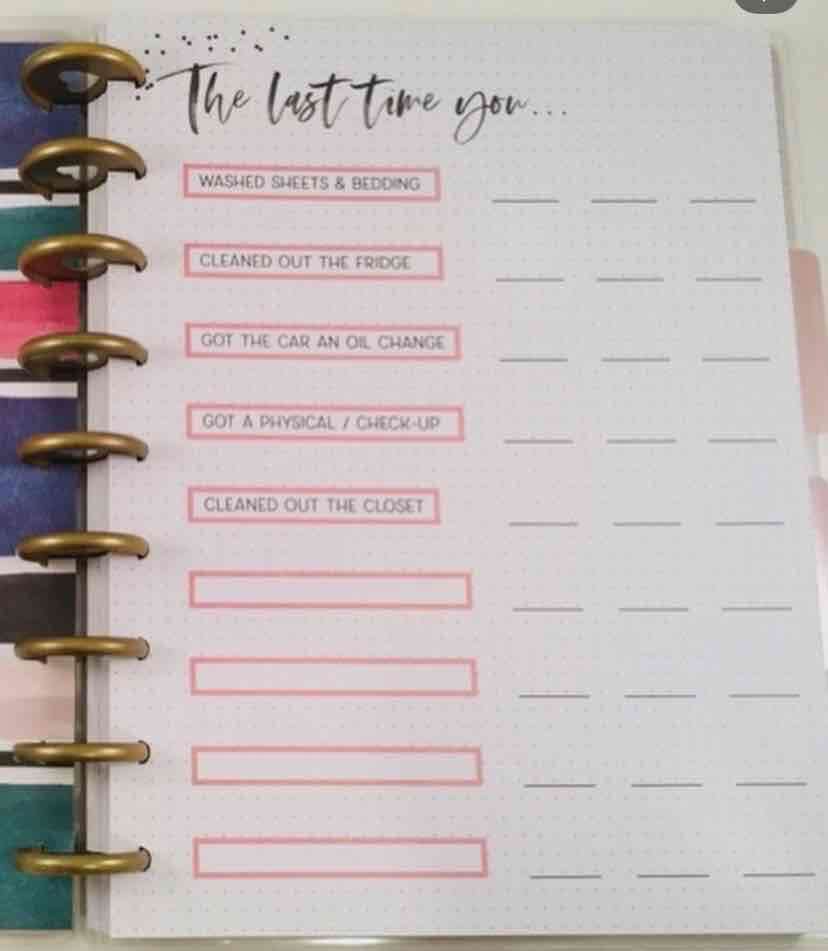 The last time you...
WASHED SHEETS & BEDDING
CLEANED OUT THE FRIDGE
GOT THE CAR AN OIL CHANGE
GOT A PHYSICAL / CHECK-UP
CLEANED OUT THE CLOSET